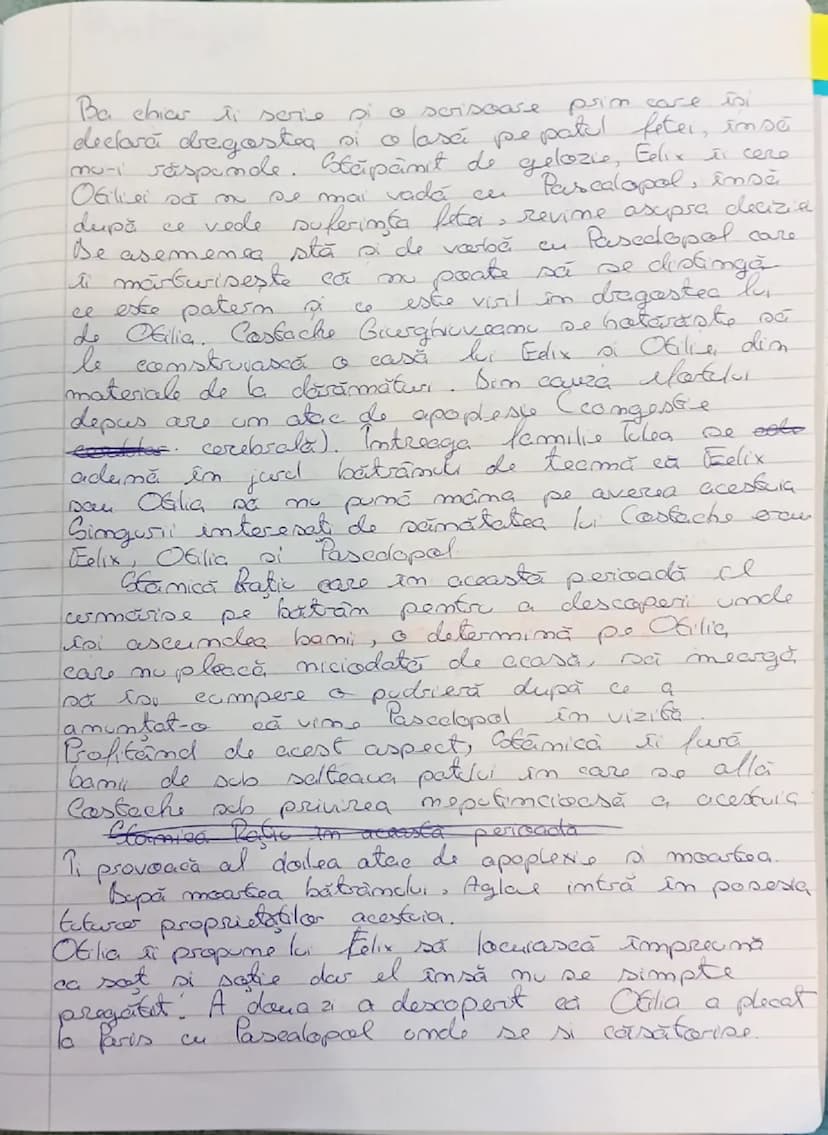 Ba chiar îi scrie și o scrisoare prin care își
declară dragostea și o lasă pe patul fetei, însă
nu-i răspunde. Stăpânit de gelozie, Felix îi cere
Otiliei să nu se mai vadă cu Pascalopol, însă
după ce vede suferința fetei, revine asupra decizie
De asemenea stă și de vorbă cu Pascalopol care
îi mărturisește că nu poate să se distingă
ce este patern și ce este viril în dragostea lui
de Otilia. Costache Giurghiuveanu se hotărăște să
le construiască o casă lui Felix și Otiliei din
materiale de la dărâmături. Din cauza efortului
depus are un atac de apoplexie (congestie
cerebrală). Întreaga familie Tulea se
adună în jurul bătrânului de teamă ca Felix
sau Otilia să nu pună mâna pe averea acestuia
Singurii interesați de sănătatea lui Costache erau
Felix, Otilia și Pascalopol
Stănică Rațiu care în această perioadă îl
urmărise pe bătrân pentru a descoperi unde
își ascundea banii, o determină pe Otilia,
care nu pleacă niciodată de acasă, să meargă
să își cumpere o pudrieră după ce a
anunțat-o că vine Pascalopol în vizită.
Profitând de acest aspect, Stănică îi fură
banii de sub salteaua patului în care se afla
Costache sub privirea neputincioasă a acestuia
Stănică Rațiu în această perioadă
Îi provoacă al doilea atac de apoplexie și moartea.
După moartea bătrânului, Aglae intră în posesia
tuturor proprietăților acestuia.
Otilia îi propune lui Felix să locuiască împreună
ca soț și soție dar el însă nu se simpte
pregătit. A doua zi a descoperit că Otilia a plecat
la Paris cu Pascalopol unde se și căsătorise.